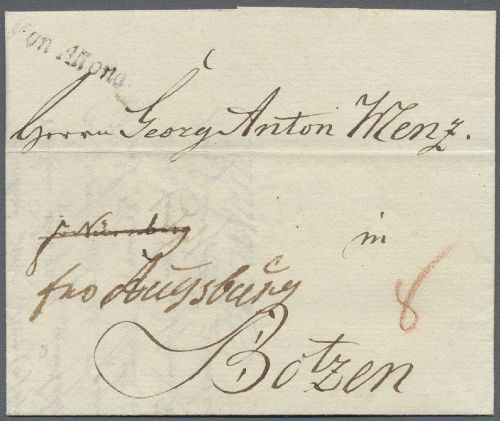 von Altona.
Herrn Georg Anton Menz.
pr Nürnberg
in
fro Augsburg
8
Botzen